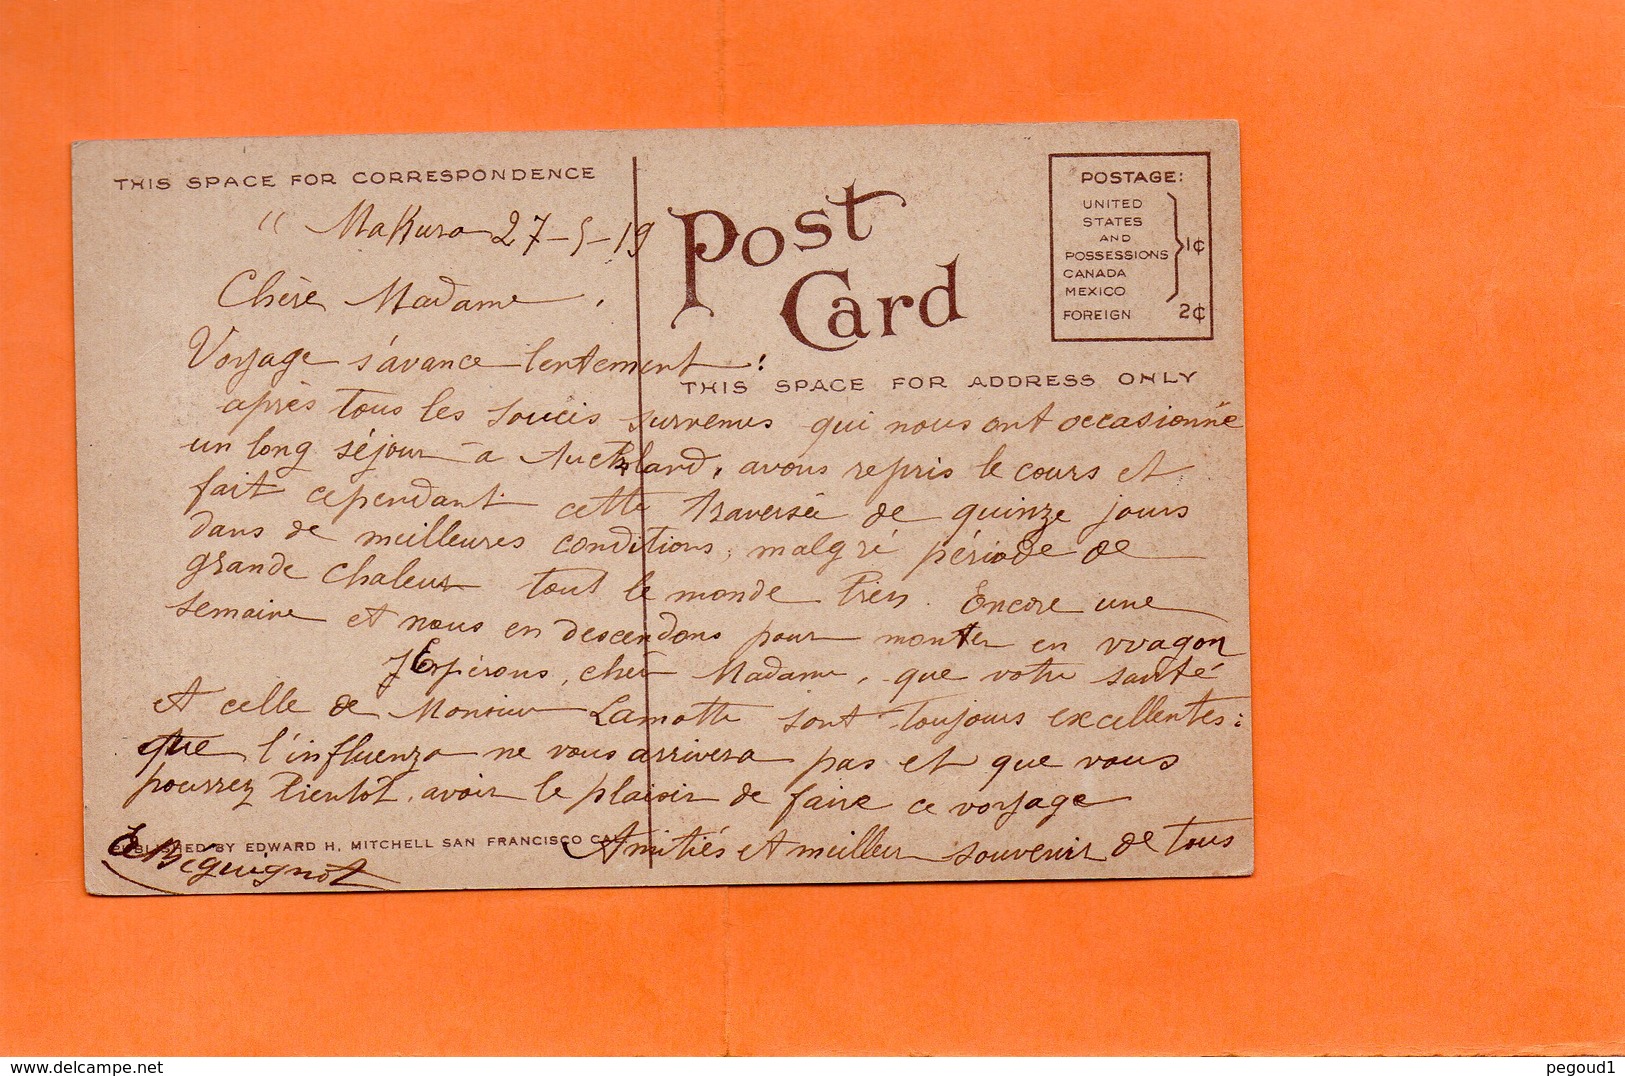 THIS SPACE FOR CORRESPONDENCE
" Makura 27-5-19
Chère Madame,
Post
Card
POSTAGE:
UNITED
STATES
AND
POSSESSIONS
CANADA
MEXICO
1¢
FOREIGN 2¢
THIS SPACE FOR ADDRESS ONLY
Voyage s'avance lentement!
après tous les soucis survenus qui nous ont occasionné
un long séjour à Auckland, avons repris le cours et
fait cependant cette traversée de quinze jours
dans de meilleures conditions, malgré période de
grande chaleur tout le monde bien. Encore une
semaine et nous en descendons pour monter en wagon
J'Espérons, chère Madame, que votre santé
et celle de Monsieur Lamotte sont toujours excellentes:
que l'influenza ne vous arrivera pas et que vous
pourrez bientôt, avoir le plaisir de faire ce voyage
Amitiés et meilleur souvenir de tous
PUBLISHED BY EDWARD H. MITCHELL SAN FRANCISCO CAL.
Béguignot
pegoud1